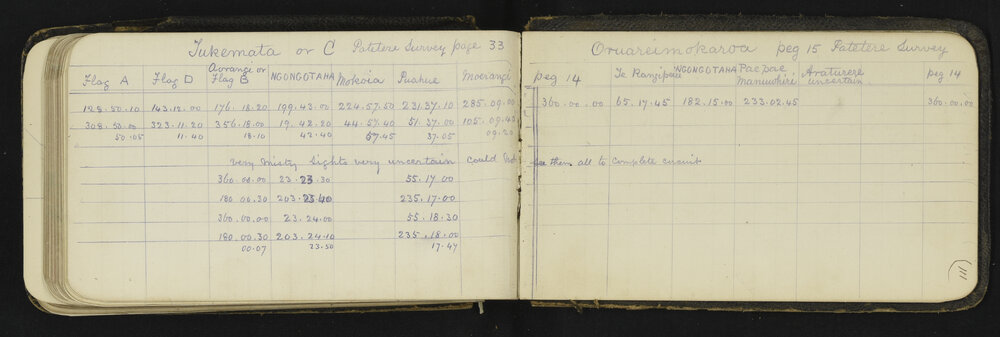 Tukemata or C Patetere Survey page 33
Flag A Flag D Avrange or Flag B NGONGOTAHA Mokoia Puahue Moerangi
128.50.10 143.12.00 176.18.20 199.43.00 224.57.50 231.37.10 285.09.00
308.50.00 323.11.20 356.18.00 19.42.20 44.57.40 51.37.00 105.09.40
50.05 11.40 18.10 42.40 57.45 37.05 09.20
very misty sights very uncertain could not see them all to complete circuit
360.00.00 23.23.30 55.17.00
180.00.30 203.23.40 235.17.00
360.00.00 23.24.00 55.18.30
180.00.30 203.24.10 235.18.00
00.07 23.50 17.47
Oruareimokaroa peg 15 Patetere Survey
peg 14 Te Ranzipaui NGONGOTAHA Pae pae Manuwhiri Araturere uncertain peg 14
360.00.00 65.17.45 182.15.00 233.02.45 360.00.00
111